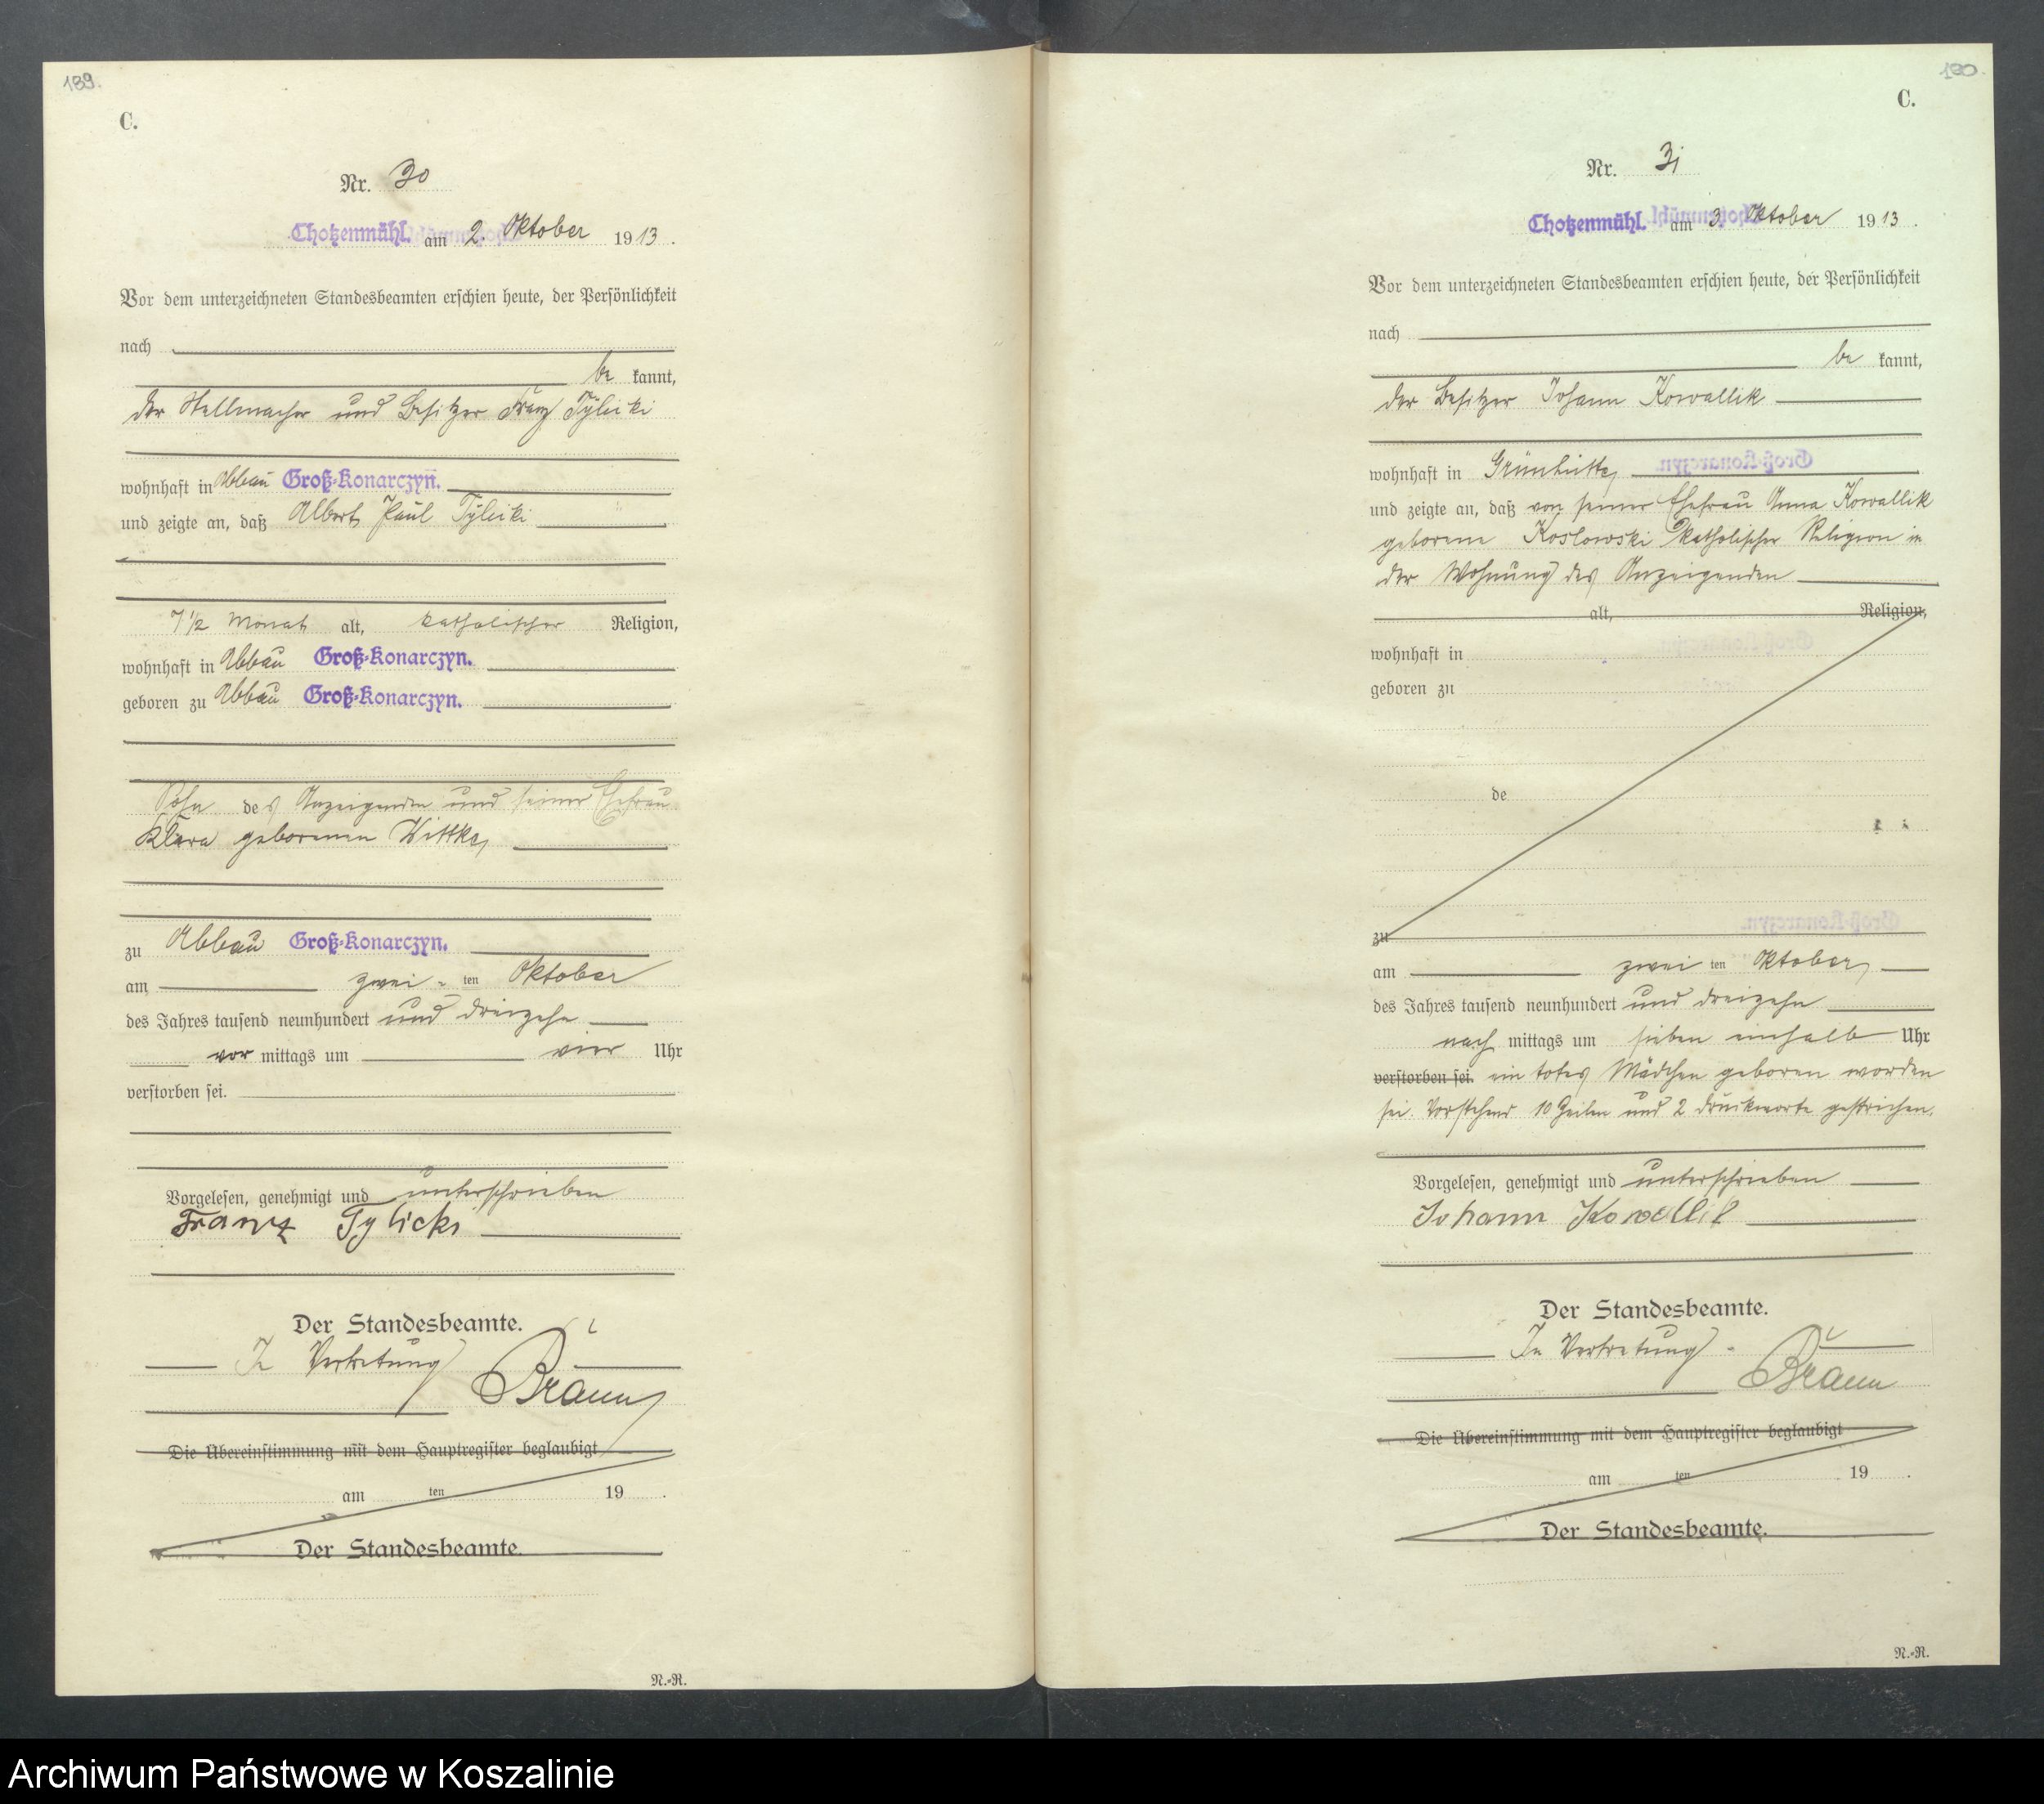 189.
C.
Nr. 30
Chotzenmühl. am 2. Oktober 1913.
Vor dem unterzeichneten Standesbeamten erschien heute, der Persönlichkeit
nach
be kannt,
der Stellmacher und Besitzer Franz Tylicki
wohnhaft in Abbau Groß-Konarczyn.
und zeigte an, daß Albert Paul Tylicki
7 1/2 Monat alt, katholischer Religion,
wohnhaft in Abbau Groß-Konarczyn.
geboren zu Abbau Groß-Konarczyn.
Sohn des Anzeigenden und seiner Ehefrau
Klara geborenen Wittke,
zu Abbau Groß-Konarczyn.
am zwei-ten Oktober
des Jahres tausend neunhundert und dreizehn
vor mittags um vier Uhr
verstorben sei.
Vorgelesen, genehmigt und unterschrieben
Franz Tylicki
Der Standesbeamte.
In Vertretung
Braun
Die Übereinstimmung mit dem Hauptregister beglaubigt
am ten 19 .
Der Standesbeamte.
N.-R.
190.
C.
Nr. 31
Chotzenmühl. am 3. Oktober 1913.
Vor dem unterzeichneten Standesbeamten erschien heute, der Persönlichkeit
nach
be kannt,
der Besitzer Johann Kowallik
wohnhaft in Grünhütte,
und zeigte an, daß von seiner Ehefrau Anna Kowallik
geborene Koslowski katholischer Religion in
der Wohnung des Anzeigenden
alt, Religion,
wohnhaft in
geboren zu
de
zu
am zwei ten Oktober,
des Jahres tausend neunhundert und dreizehn
nach mittags um sieben einhalb Uhr
verstorben sei. ein totes Mädchen geboren worden
sei. Vorstehend 10 Zeilen und 2 Druckworte gestrichen.
Vorgelesen, genehmigt und unterschrieben
Johann Kowallik
Der Standesbeamte.
In Vertretung.
Braun
Die Übereinstimmung mit dem Hauptregister beglaubigt
am ten 19 .
Der Standesbeamte.
N.-R.
Archiwum Państwowe w Koszalinie